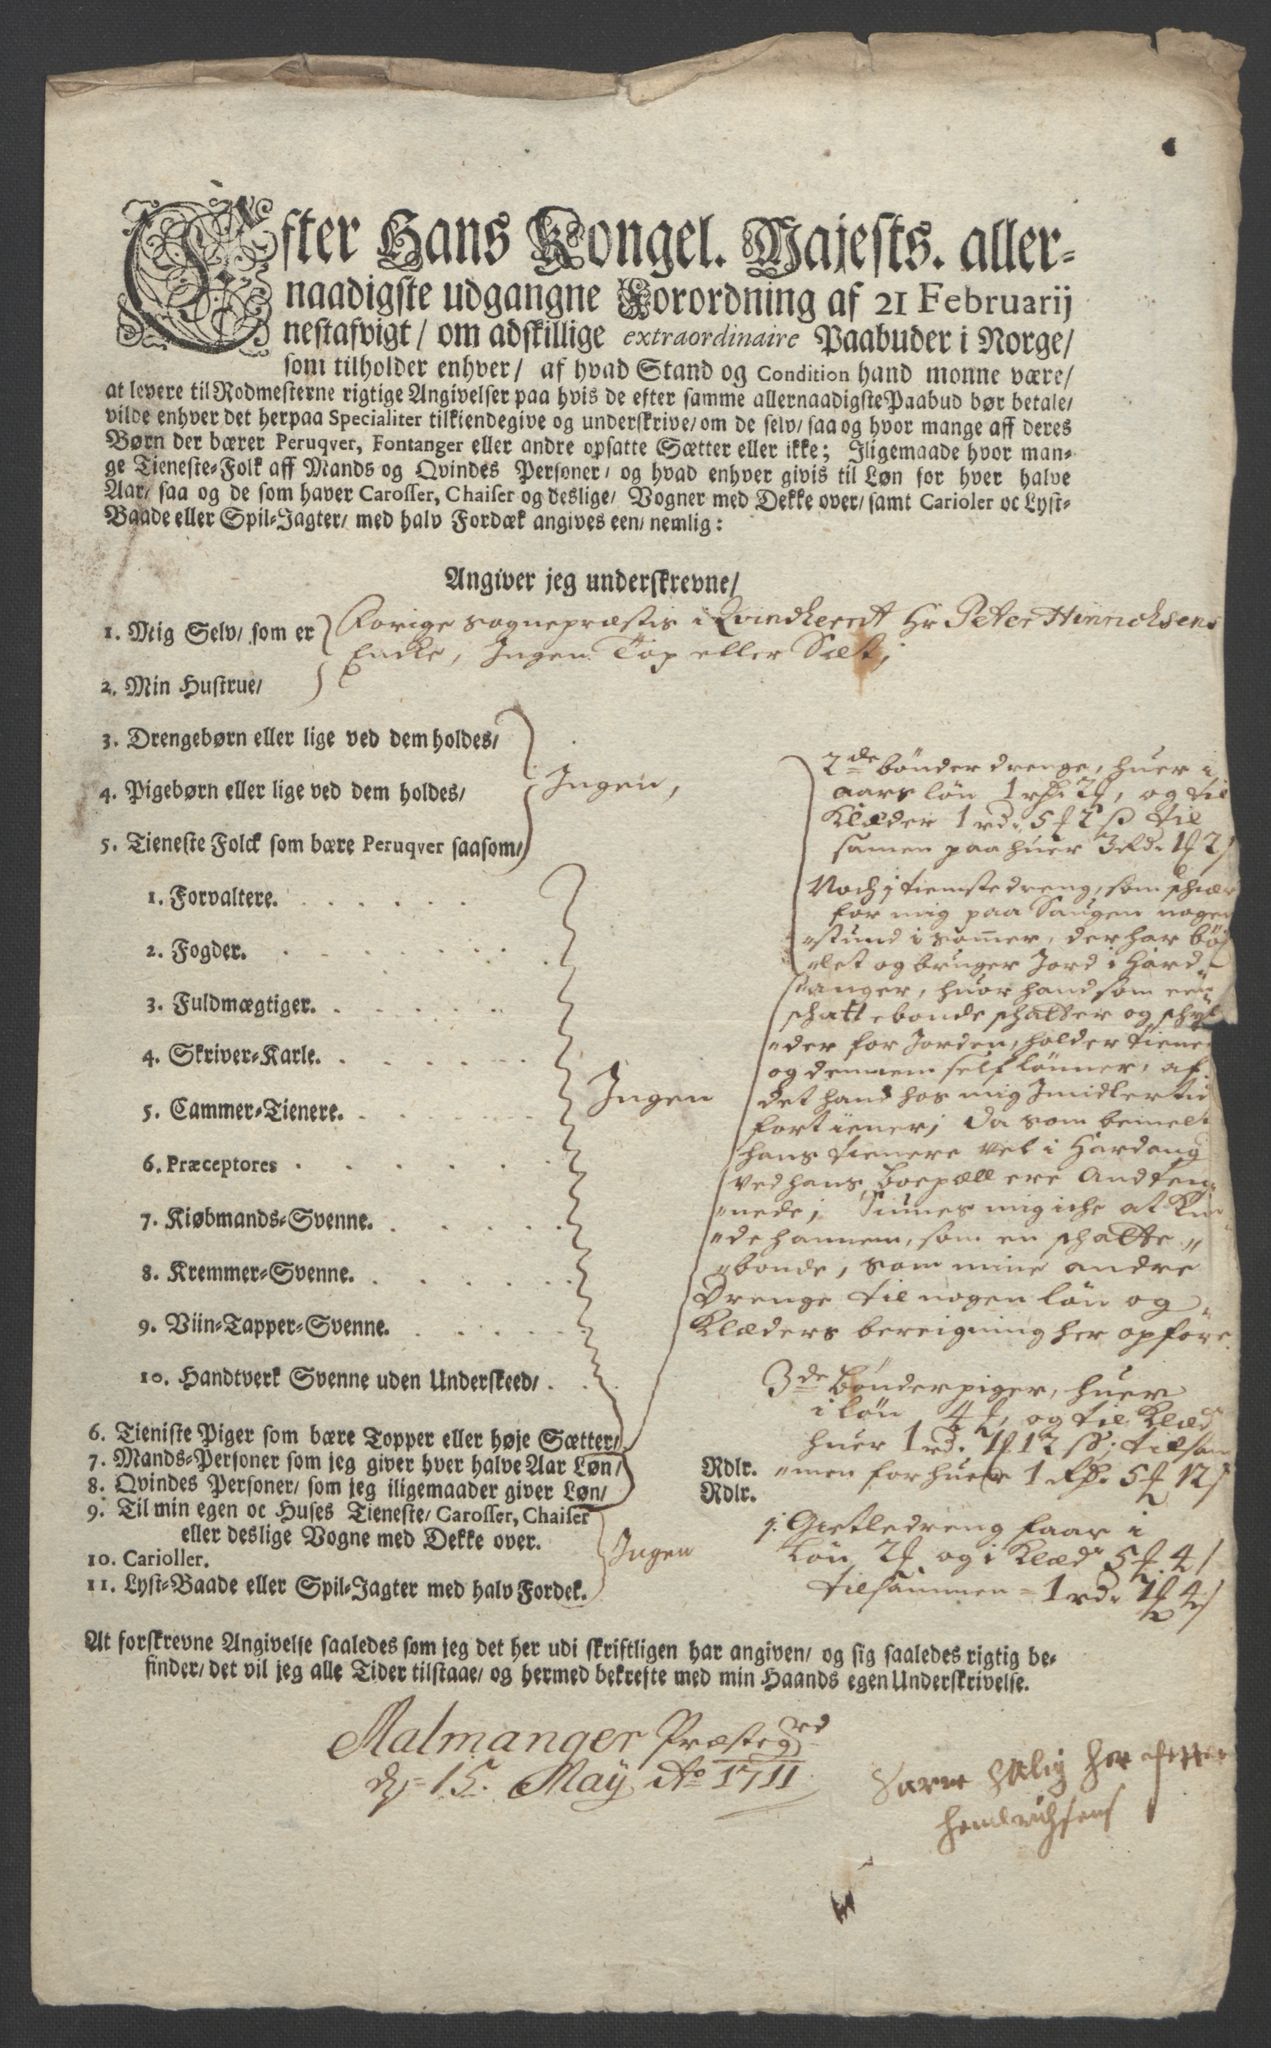 Efter Hans Kongel. Majests. aller-
naadigste udgangne Forordning af 21 Februarij
nestafvigt/ om adskillige extraordinaire Paabuder i Norge/
som tilholder enhver/ af hvad Stand og Condition hand monne være/
at levere til Rodmesterne rigtige Angivelser paa hvis de efter samme allernaadigste Paabud bør betale/
vilde enhver det herpaa Specialiter tilkiendegive og underskrive/ om de selv/ saa og hvor mange aff deres
Børn der bærer Peruqver, Fontanger eller andre opsatte Sætter eller ikke; Iligemaade hvor man-
ge Tieneste-Folk aff Mands og Qvindes Personer/ og hvad enhver givis til Løn for hver halve
Aar/ saa og de som haver Carosser, Chaiser og deslige/ Vogner med Dekke over/ samt Carioler oc Lyst-
Baade eller Spil-Jagter/ med halv Fordæk angives een/ nemlig:
Angiver jeg underskrevne/
1. Mig Selv/ som er Forige sognepræstis i Qvindherrit Hr Peter Hinrichsens
Encke, Ingen Top eller Sæt;
2. Min Hustrue/
3. Drengebørn eller lige ved dem holdes/
4. Pigebørn eller lige ved dem holdes/ Ingen,
5. Tieneste Folck som bære Peruqver saasom/
1. Forvaltere.
2. Fogder.
3. Fuldmægtiger.
4. Skriver-Karle.
5. Cammer-Tienere. Ingen
6. Præceptores
7. Kiøbmands-Svenne.
8. Kremmer-Svenne.
9. Viin-Tapper-Svenne.
10. Handtverk Svenne uden Underskeed/
6. Tieniste Piger som bære Topper eller høje Sætter/
7. Mands-Personer som jeg giver hver halve Aar Løn/ Rdlr.
8. Qvindes Personer/ som jeg iligemaader giver Løn/ Rdlr.
9. Til min egen oc Huses Tieneste/ Carosser, Chaiser
eller deslige Vogne med Dekke over. Ingen
10. Carioller.
11. Lyst-Baade eller Spil-Jagter med halv Fordek.
2de bönder drenge, huer i
aars lön 1 rd 2, og til
Klæder 1 rd. 5 til
samen paa huer 3 Rd. 1 2
Noch j tienstedreng, som schiær
for mig paa Saugen nogen
stund i somer, der har
og bruger Jord i Hard-
anger, huor hand som een
schattebonde schatter og
der for Jorden, holder tiene
og dennem self lönner, af
det hand hos mig Imidlertid
fortiener; da som bemelt
hans tienere vel i Hardang
ved hans boepæll ere Andteg-
nede; Siunes mig iche at
hannem, som en schatte
bonde, som mine andre
Drenge til nogen lön og
Klæders bereigning her opföre.
3de bönderpiger, huer
i lön 4, og til Klæd
huer 1 rd. 1 12 ; tilsam
men for huer 1 Rd. 5 12
j. Gietledreng faar i
Lön 2 og i Klæd 5 4
tilsammen = 1 rd. 1 4
At forskrevne Angivelse saaledes som jeg det her udi skriftligen har angiven/ og sig saaledes rigtig be-
finder/ det vil jeg alle Tider tilstaae/ og hermed bekrefte med min Haands egen Underskrivelse.
Malmanger Præstegrd
dj= 15. Maij Ao 1711
Salig her Petter
Hendrichsens